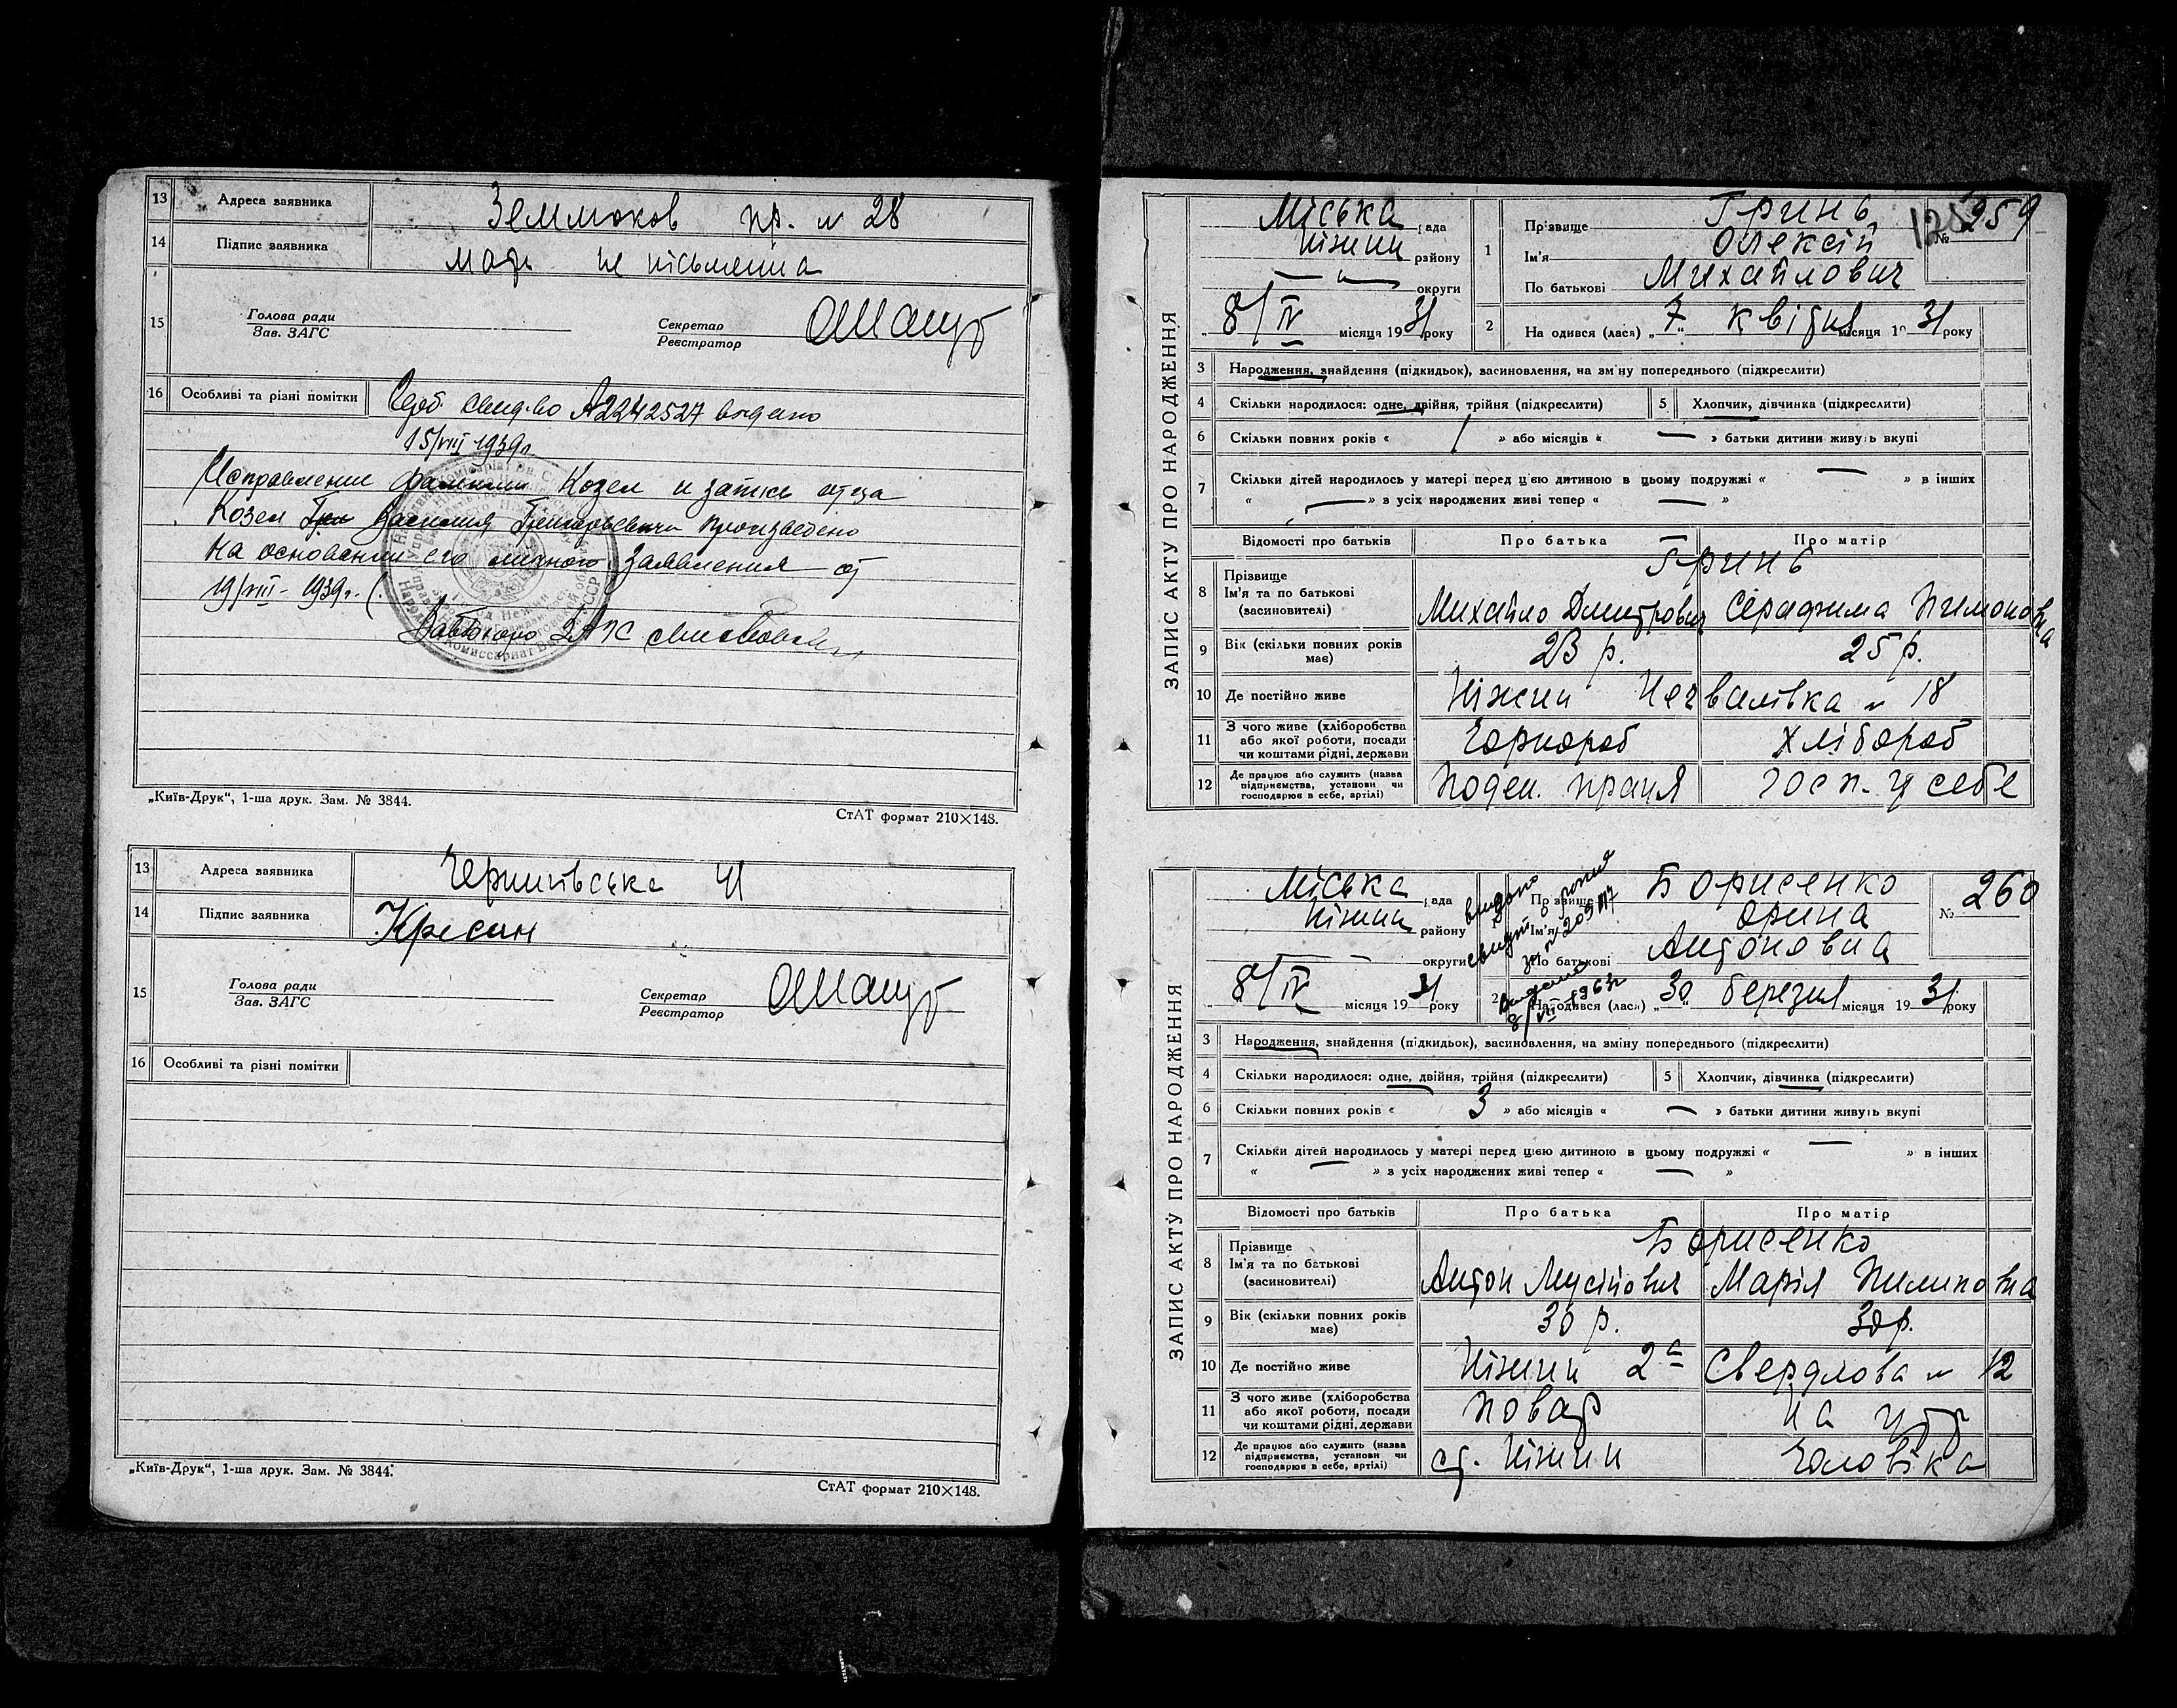 13 Адреса заявника Земляков пр. № 28
14 Підпис заявника мати не письменна
15 Голова ради Секретар
Зав. ЗАГС Реєстратор
16 Особливі та різні помітки свид-во 2242527 выдано
15/VIII 1939г.
Исправление фамилии Козел и запись отца
Козел Василия Григорьевича произведено
на основании его личного заявления от
19/VIII - 1939г.
ЗАГС
„Київ-Друк“, 1-ша друк. Зам. № 3844.
СтАТ формат 210×148.
13 Адреса заявника Чернігівська 41
14 Підпис заявника Кресан
15 Голова ради Секретар
Зав. ЗАГС Реєстратор
16 Особливі та різні помітки
„Київ-Друк“, 1-ша друк. Зам. № 3844.
СтАТ формат 210×148.
ЗАПИС АКТУ ПРО НАРОДЖЕННЯ
Міська рада
Ніжин району
округи
8/IV місяця 1931 року
1 Прізвище Гринь № 259
Ім'я Олексій
По батькові Михайлович
2 Народився (лася) „7“ квітня місяця 1931 року
3 Народження, знайдення (підкидьок), засиновлення, на зміну попереднього (підкреслити)
4 Скільки народилося: одне, двійня, трійня (підкреслити) 5 Хлопчик, дівчинка (підкреслити)
6 Скільки повних років « 1 » або місяців « — » батьки дитини живуть вкупі
7 Скільки дітей народилось у матері перед цією дитиною в цьому подружжі « — » в інших
« — » з усіх народжених живі тепер « — »
Відомості про батьків Про батька Про матір
8 Прізвище Гринь
Ім'я та по батькові
(засиновителі) Михайло Дмитрович Серафима Пимоновна
9 Вік (скільки повних років має) 23 р. 25 р.
10 Де постійно живе Ніжин Мегвалівка № 18
11 З чого живе (хліборобства
або якої роботи, посади
чи коштами рідні, держави Чорнороб Хлібороб
12 Де працює або служить (назва
підприємства, установи чи
господарює в себе, артілі) Поден. праця госп. у себе
ЗАПИС АКТУ ПРО НАРОДЖЕННЯ
Міська рада
Ніжин району
округи
8/IV місяця 1931 року
1963г
Прізвище Борисенко № 260
Ім'я Орина
По батькові Антоновна
2 Народився (лася) „30“ березня місяця 1931 року
3 Народження, знайдення (підкидьок), засиновлення, на зміну попереднього (підкреслити)
4 Скільки народилося: одне, двійня, трійня (підкреслити) 5 Хлопчик, дівчинка (підкреслити)
6 Скільки повних років « 3 » або місяців « — » батьки дитини живуть вкупі
7 Скільки дітей народилось у матері перед цією дитиною в цьому подружжі « — » в інших
« — » з усіх народжених живі тепер « — »
Відомості про батьків Про батька Про матір
8 Прізвище Борисенко
Ім'я та по батькові
(засиновителі) Антон Мусійович Марія Пилиповна
9 Вік (скільки повних років має) 30 р. 30 р.
10 Де постійно живе Ніжин 2а Свердлова № 12
11 З чого живе (хліборобства
або якої роботи, посади
чи коштами рідні, держави Повар на утр
12 Де працює або служить (назва
підприємства, установи чи
господарює в себе, артілі) ст. Ніжин Чоловіка